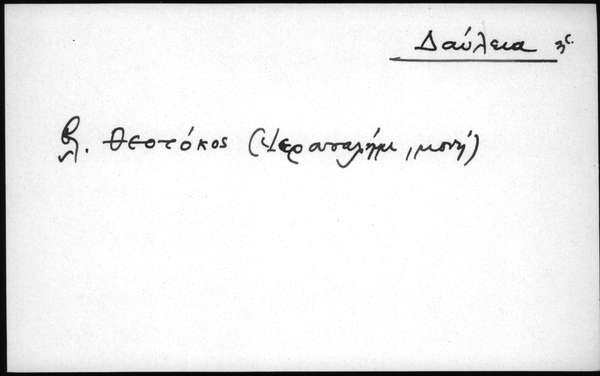 Δαύλεια
βλ. Θεοτόκος (Ιερουσαλήμ, μονή)